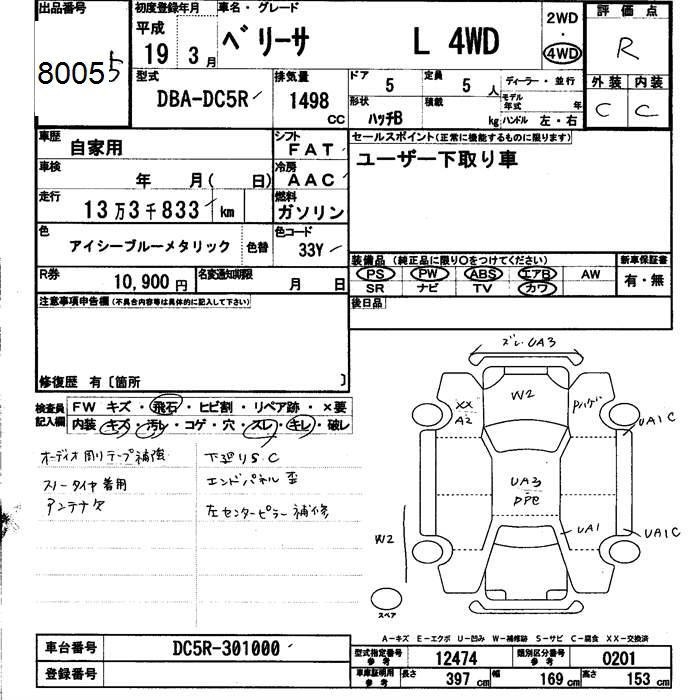 出品番号 初度登録年月 車名・グレード 2WD・4WD 評価点
80055 平成 19 3月 ベリーサ L 4WD R
型式 排気量 ドア 定員 ディーラー・並行 外装 内装
DBA-DC5R 1498 CC 5 5人 モデル年式 年 C C
形状 積載 ハンドル 左・右
ハッチB kg
車歴 自家用 シフト FAT セールスポイント(正常に機能するものに限ります)
車検 年 月( 日) 冷房 AAC ユーザー下取り車
走行 13万3千833 km 燃料 ガソリン
色 アイシーブルーメタリック 色替 色コード 33Y
装備品 (純正品に限り○をつけてください) 新車保証書
R券 10,900円 名変通知期限 月 日 PS PW ABS エアB AW 有・無
SR ナビ TV カワ
注意事項申告欄(不具合内容等は具体的に記入して下さい) 後日品
修復歴 有〔箇所 〕
検査員記入欄 FW キズ・飛石・ヒビ割・リペア跡・×要
内装 キズ・汚レ・コゲ・穴・スレ・キレ・破レ
オーディオ周りテープ補強 下廻りS C
スノータイヤ着用 エンドパネル歪
アンテナ欠 左センターピラー補修
ズレ・UA3
W2
XX
A2
Pハゲ
UA1C
UA3
PPC
UA1
UA1C
W2
スペア
A-キズ E-エクボ U-凹み W-補修跡 S-サビ C-腐食 XX-交換済
車台番号 DC5R-301000
登録番号
型式指定番号 参考 12474 類別区分番号 参考 0201
車庫証明用 参考 長さ 397 cm 幅 169 cm 高さ 153 cm